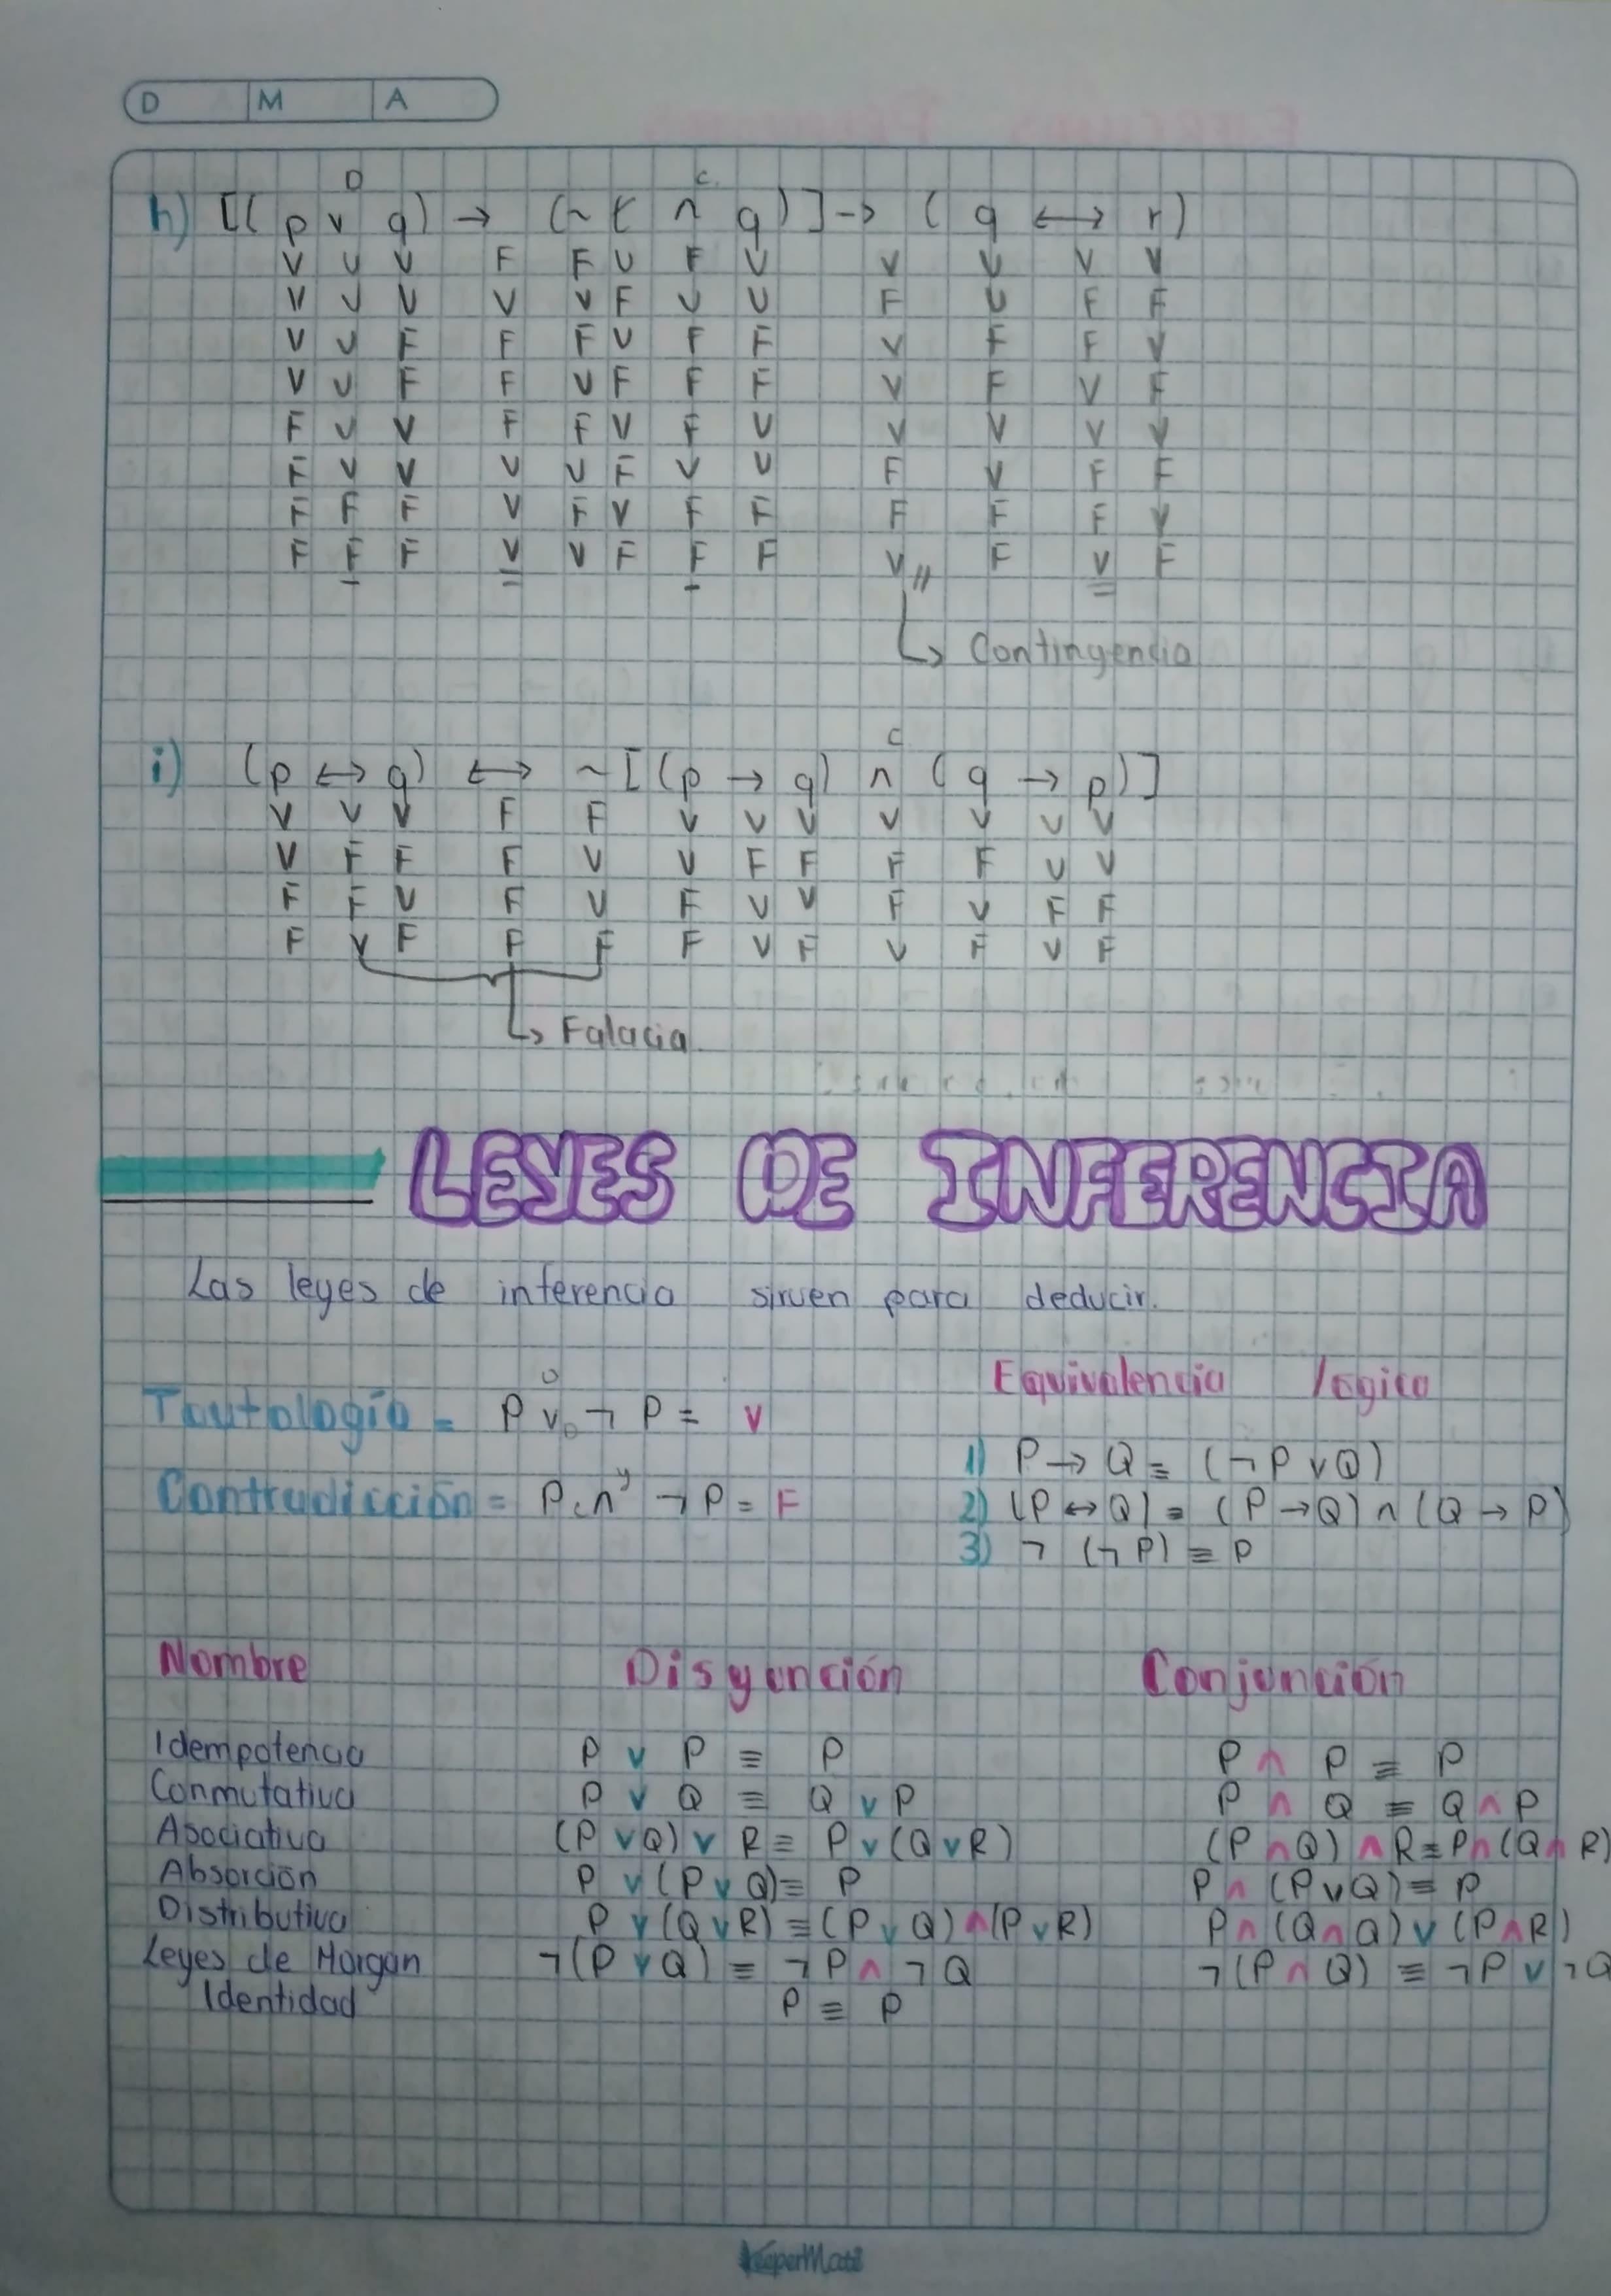 D M A
D C.
h) [( p v q) → (~ r ∧ q)] → ( q ↔ r)
V V V F F V F V V V V V
V V V V V F V V F V F F
V V F F F V F F V F F V
V V F F V F F F V F V F
F V V F F V F V V V V V
F V V V V F V V F V F F
F F F V F V F F F F F V
F F F V V F F F V // F V F
↳ Contingencia
C
i) (p ↔ q) ↔ ~[(p → q) ∧ (q → p)]
V V V F F V V V V V V V
V F F F V V F F F F V V
F F V F V F V V F V F F
F V F F F F V F V F V F
↳ Falacia
LEYES DE INFERENCIA
Las leyes de inferencia sirven para deducir.
Equivalencia logica
Tautología = P v o ¬ P = V
Contradicción = P ∧ y ¬ P = F
1) P → Q ≡ (¬ P v Q)
2) (P ↔ Q) ≡ (P → Q) ∧ (Q → P)
3) ¬ (¬ P) ≡ P
Nombre Disyunción Conjunción
Idempotencia P v P ≡ P P ∧ P ≡ P
Conmutativa P v Q ≡ Q v P P ∧ Q ≡ Q ∧ P
Asociativa (P v Q) v R ≡ P v (Q v R) (P ∧ Q) ∧ R ≡ P ∧ (Q ∧ R)
Absorción P v (P v Q) ≡ P P ∧ (P v Q) ≡ P
Distributiva P v (Q v R) ≡ (P v Q) ∧ (P v R) P ∧ (Q ∧ Q) v (P ∧ R)
Leyes de Morgan ¬(P v Q) ≡ ¬ P ∧ ¬ Q ¬(P ∧ Q) ≡ ¬ P v ¬ Q
Identidad P ≡ P
KeeperMate